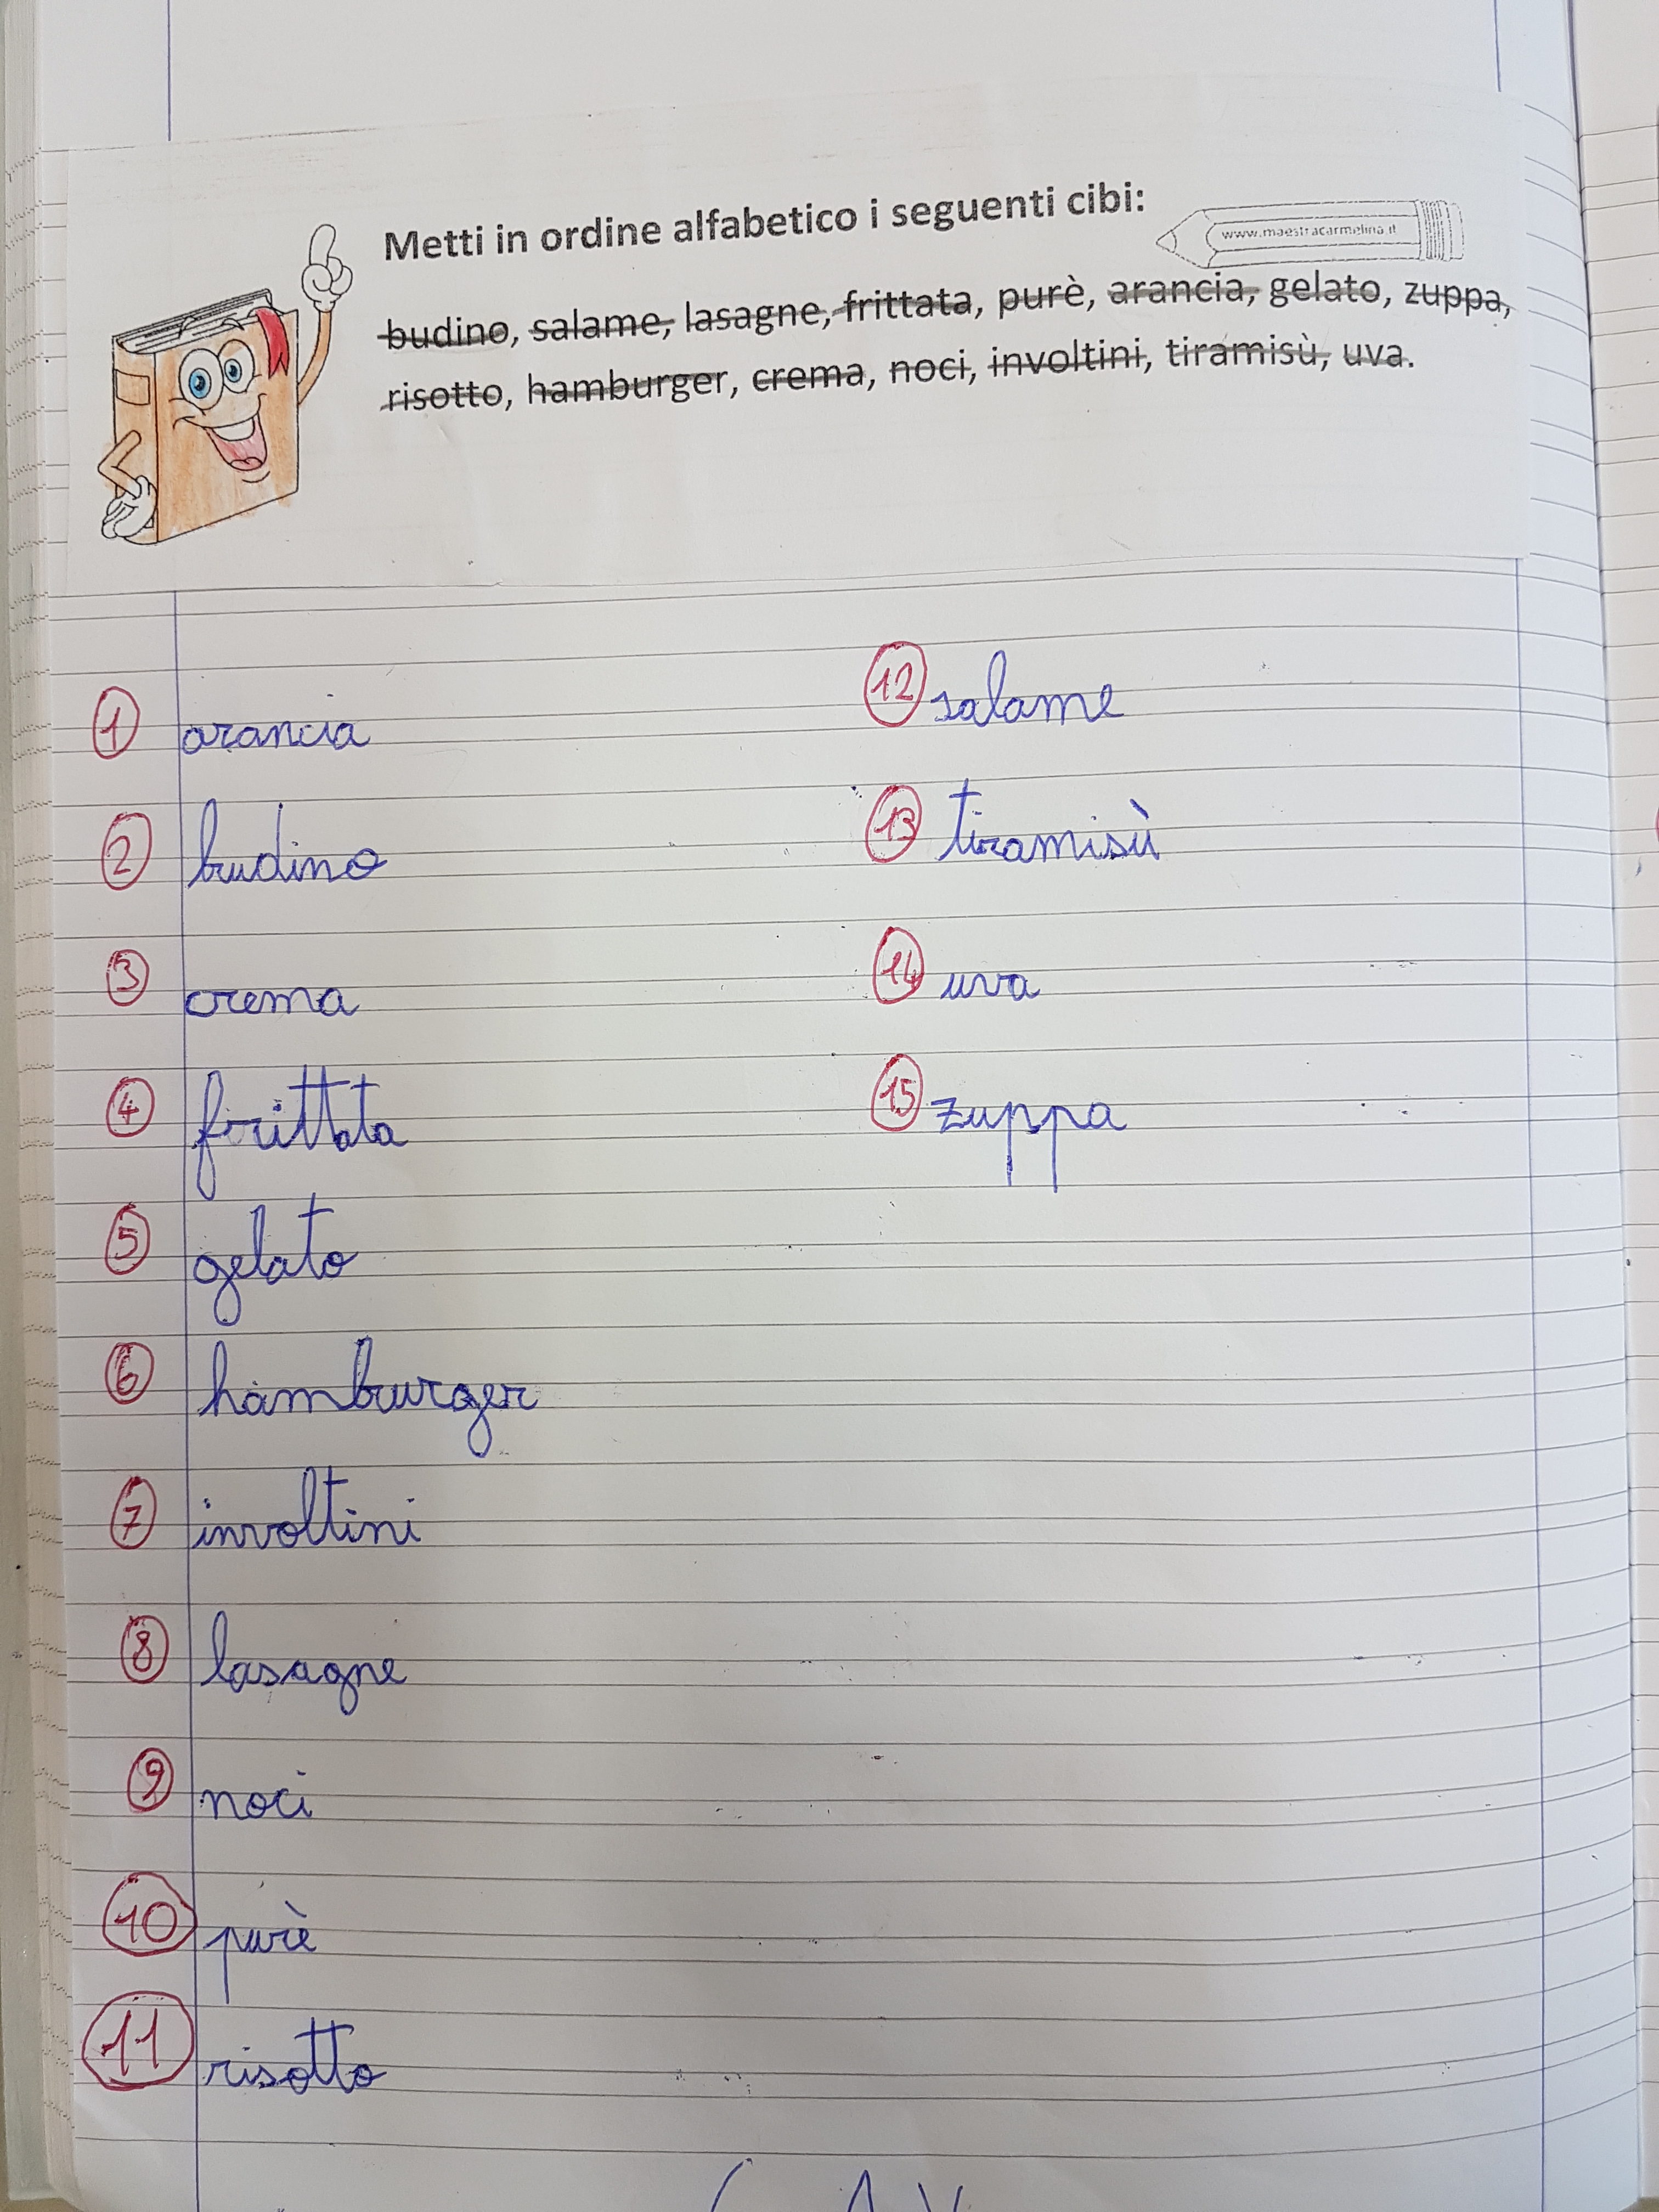 Metti in ordine alfabetico i seguenti cibi:
www.maestracarmelina.it
budino, salame, lasagne, frittata, purè, arancia, gelato, zuppa,
risotto, hamburger, crema, noci, involtini, tiramisù, uva.
1 arancia
2 budino
3 crema
4 frittata
5 gelato
6 hamburger
7 involtini
8 lasagne
9 noci
10 purè
11 risotto
12 salame
13 tiramisù
14 uva
15 zuppa